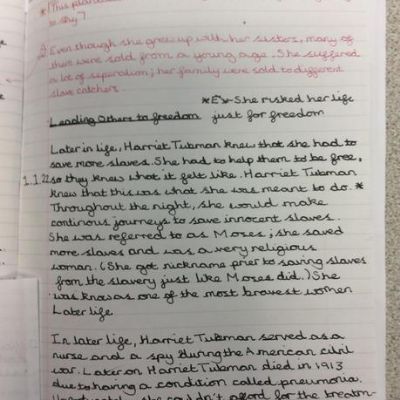 * (This plan
to stay?
A Even though she grew up with her sisters, many of
them were sold from a young age. She suffered
a lot of separation; her family were sold to different
slave catchers.
*E* - She risked her life
Leading Others to freedom just for freedom
Later in life, Harriet Tubman knew that she had to
save more slaves. She had to help them to be free,
1.1.22 so they knew what it felt like. Harriet Tubman
knew that this was what she was meant to do. *
Throughout the night, she would make
continous journeys to save innocent slaves.
She was referred to as Moses; she saved
more slaves and was a very religious
woman. (She got nickname prior to saving slaves
from the slavery just like Moses did.) She
was know as one of the most bravest women
Later life
In later life, Harriet Tubman served as a
nurse and a spy during the American civil
war. Later on Harriet Tubman died in 1913
due to having a condition called pneumonia.
she couldn't afford for the treatm-